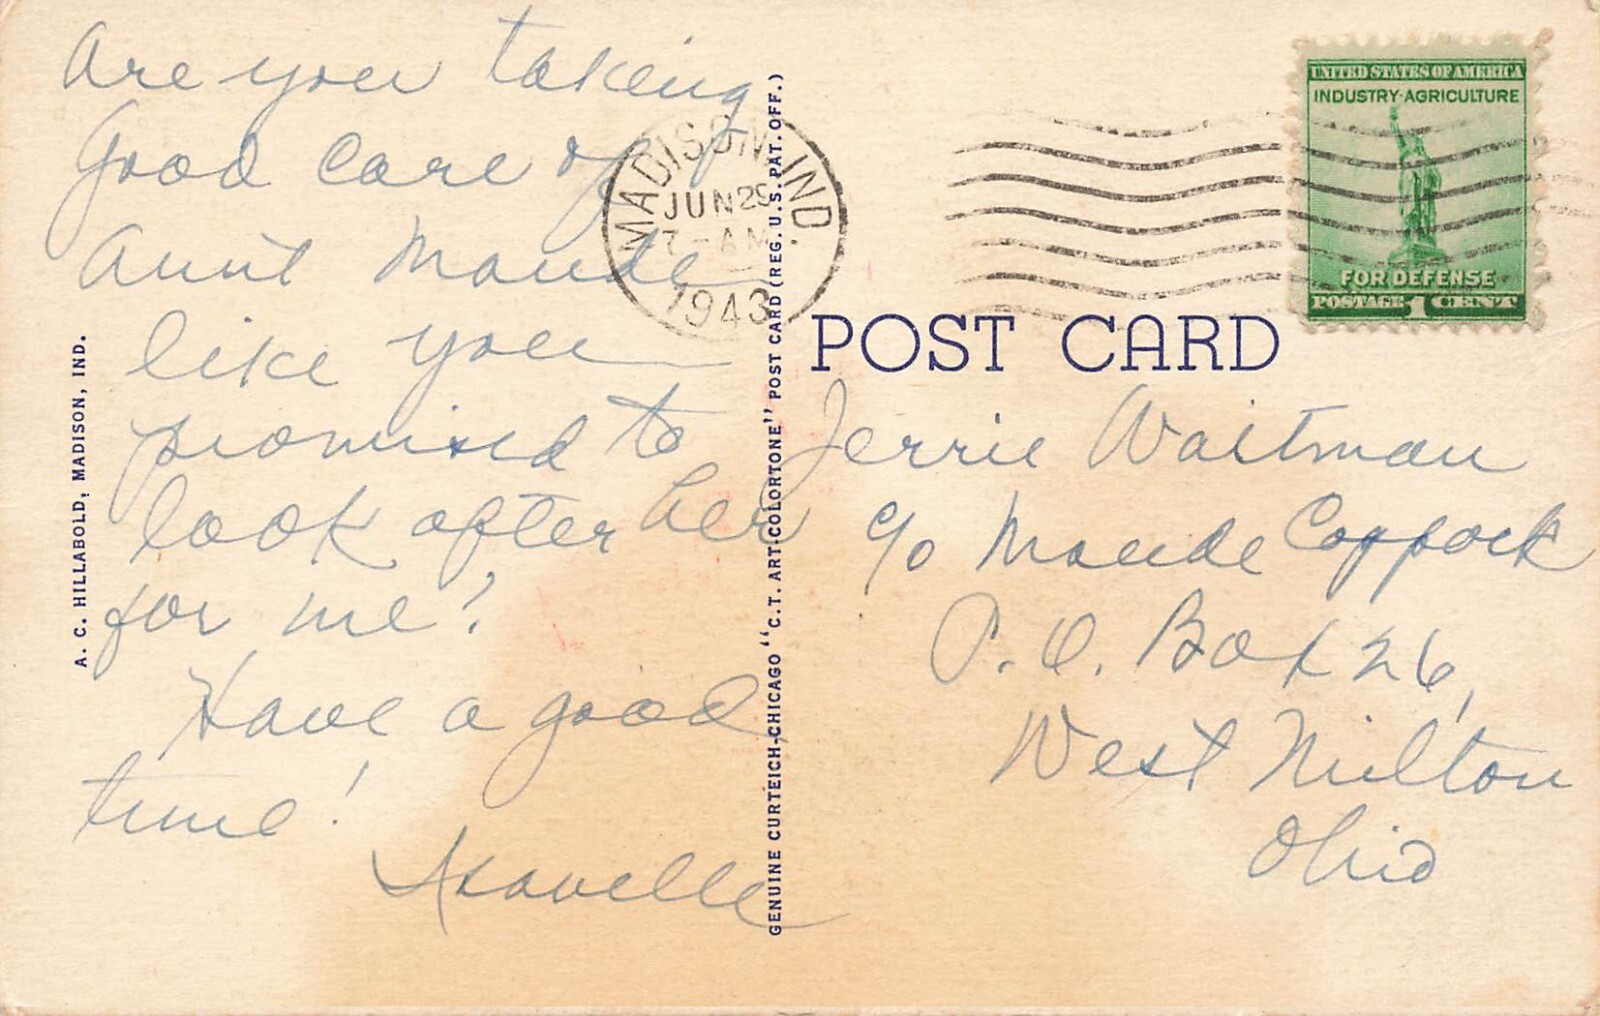 Are you taking
Good care of
Aunt Maude
like you
promised to
look after her
for me?
Have a good
time!
A. C. HILLABOLD, MADISON, IND.
MADISON, IND.
JUN 29
7-AM
1943
GENUINE CURTEICH-CHICAGO "C.T. ART-COLORTONE" POST CARD (REG. U.S. PAT. OFF.)
UNITED STATES OF AMERICA
INDUSTRY·AGRICULTURE
FOR DEFENSE
POSTAGE 1 CENT
POST CARD
Jerrie Waitman
c/o Maude Coppock
P.O. Box 26,
West Milton
Ohio